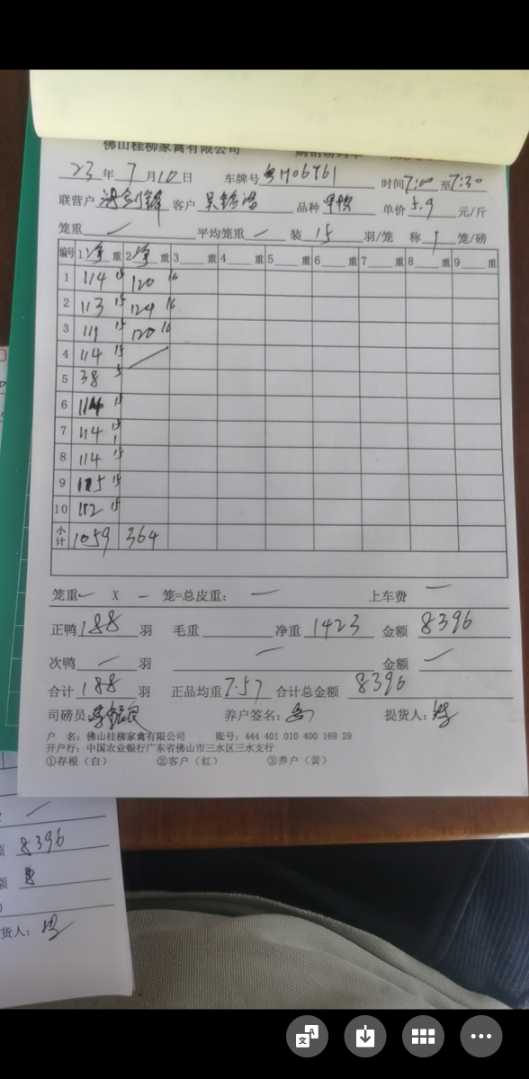 佛山桂柳家禽有限公司
23 年 7 月 10 日 车牌号 时间 7:00 至 7:30
联营户 客户 品种 单价 5.9 元/斤
笼重 平均笼重 装 15 羽/笼 称 1 笼/磅
编号 1 净 重 2 净 重 3 重 4 重 5 重 6 重 7 重 8 重 9 重
1 114 15 120 16
2 113 15 124 16
3 111 15 120 16
4 114 15
5 38 5
6 114 15
7 114 15
8 114 15
9 115 15
10 112 15
小计 1059 364
笼重 X 笼=总皮重: 上车费
正鸭 188 羽 毛重 净重 1423 金额 8396
次鸭 羽 金额
合计 188 羽 正品均重 7.57 合计总金额 8396
司磅员: 养户签名: 提货人:
户 名: 佛山桂柳家禽有限公司 账号: 444 401 010 400 169 29
开户行: 中国农业银行广东省佛山市三水区三水支行
①存根(白) ②客户(红) ③养户(黄)
额 8396
额
货人: